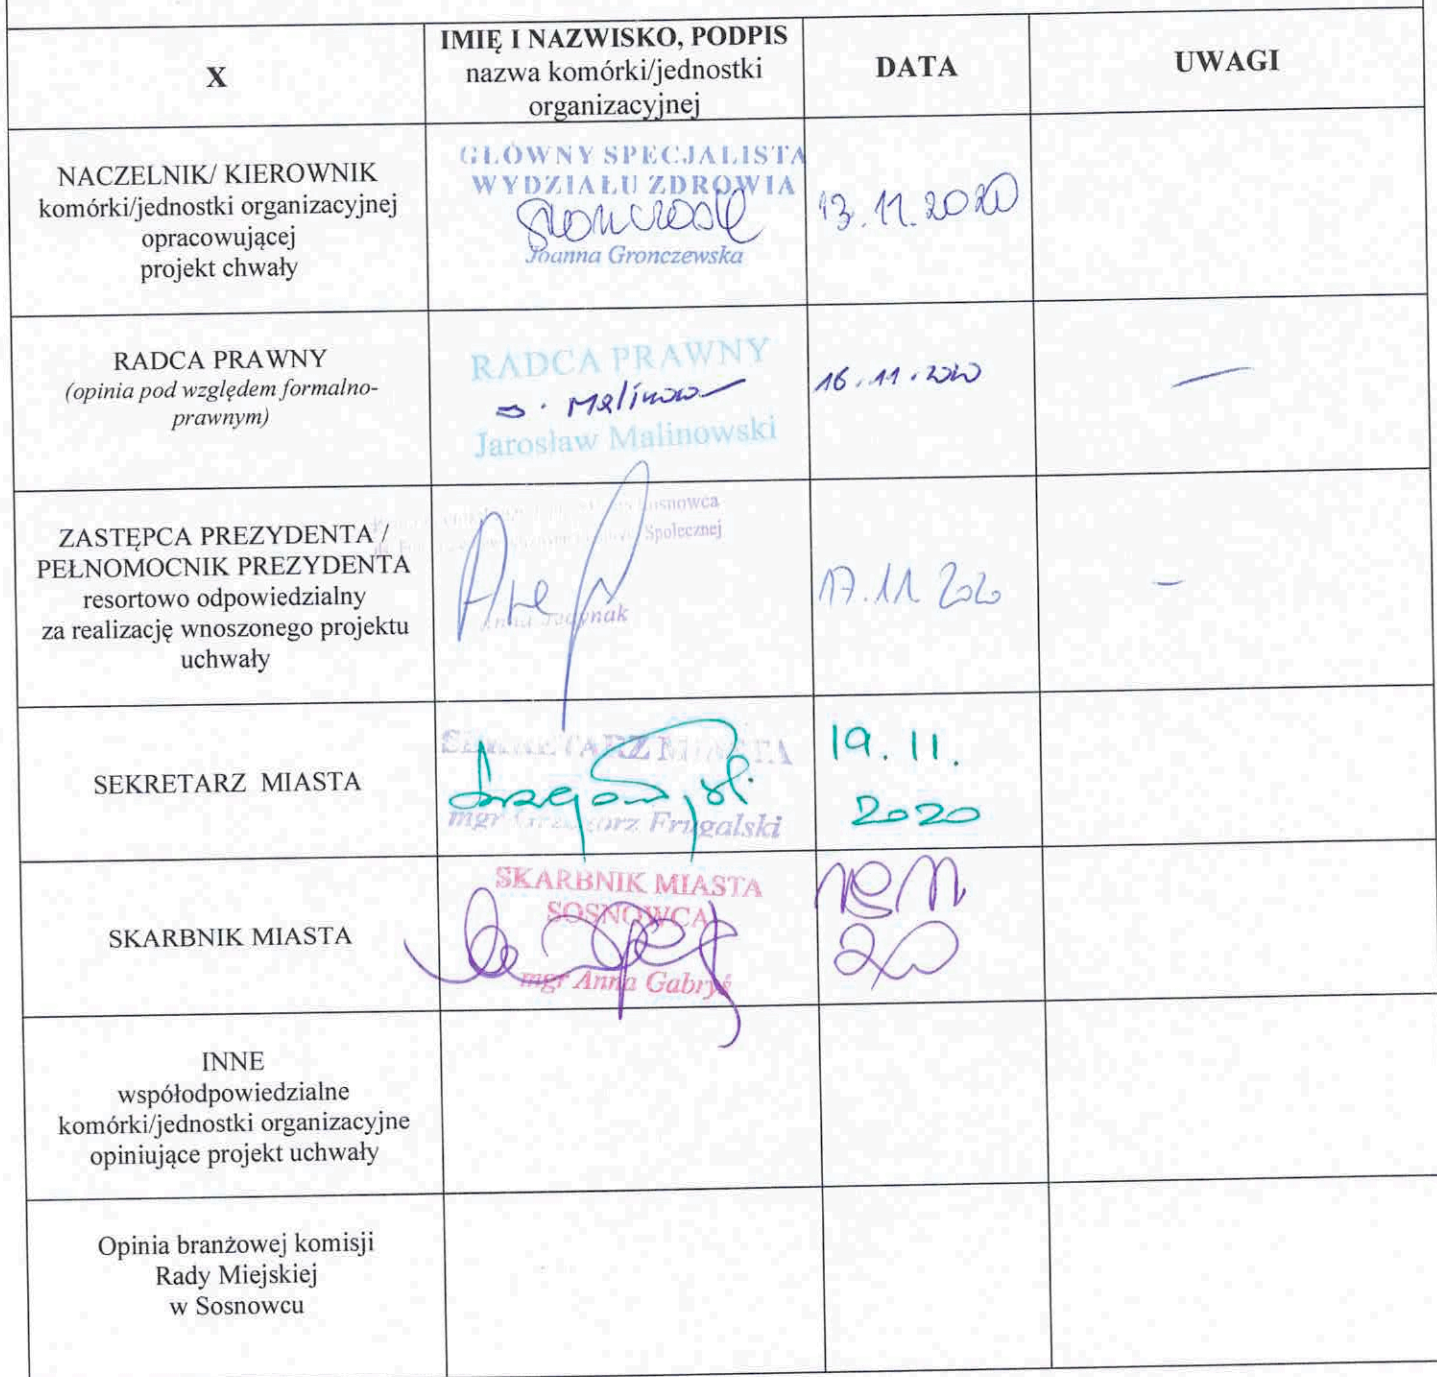 X
IMIĘ I NAZWISKO, PODPIS
nazwa komórki/jednostki
organizacyjnej
DATA
UWAGI
NACZELNIK/ KIEROWNIK
komórki/jednostki organizacyjnej
opracowującej
projekt chwały
GŁÓWNY SPECJALISTA
WYDZIAŁU ZDROWIA
Joanna Gronczewska
13.11.2020
RADCA PRAWNY
(opinia pod względem formalno-
prawnym)
RADCA PRAWNY
Jarosław Malinowski
16.11.2020
—
ZASTĘPCA PREZYDENTA /
PEŁNOMOCNIK PREZYDENTA
resortowo odpowiedzialny
za realizację wnoszonego projektu
uchwały
Sosnowca
Społecznej
Anna Jedynak
17.11.2020
–
SEKRETARZ MIASTA
SEKRETARZ MIASTA
mgr Grzegorz Frugalski
19.11.
2020
SKARBNIK MIASTA
SKARBNIK MIASTA
SOSNOWCA
mgr Anna Gabryś
INNE
współodpowiedzialne
komórki/jednostki organizacyjne
opiniujące projekt uchwały
Opinia branżowej komisji
Rady Miejskiej
w Sosnowcu